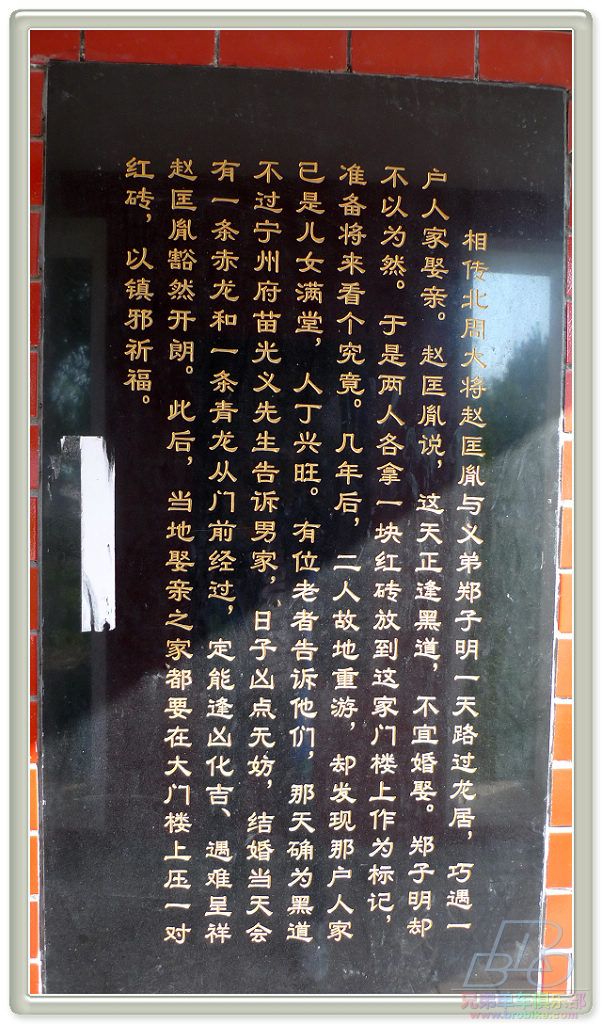 相传北周大将赵匡胤与义弟郑子明一天路过龙居，巧遇一
户人家娶亲。赵匡胤说，这天正逢黑道，不宜婚娶。郑子明却
不以为然。于是两人各拿一块红砖放到这家门楼上作为标记，
准备将来看个究竟。几年后，二人故地重游，却发现那户人家
已是儿女满堂，人丁兴旺。有位老者告诉他们，那天确为黑道
不过宁州府苗光义先生告诉男家，日子凶点无妨，结婚当天会
有一条赤龙和一条青龙从门前经过，定能逢凶化吉、遇难呈祥
赵匡胤豁然开朗。此后，当地娶亲之家都要在大门楼上压一对
红砖，以镇邪祈福。
BRO
兄弟单车俱乐部
www.brobike.com